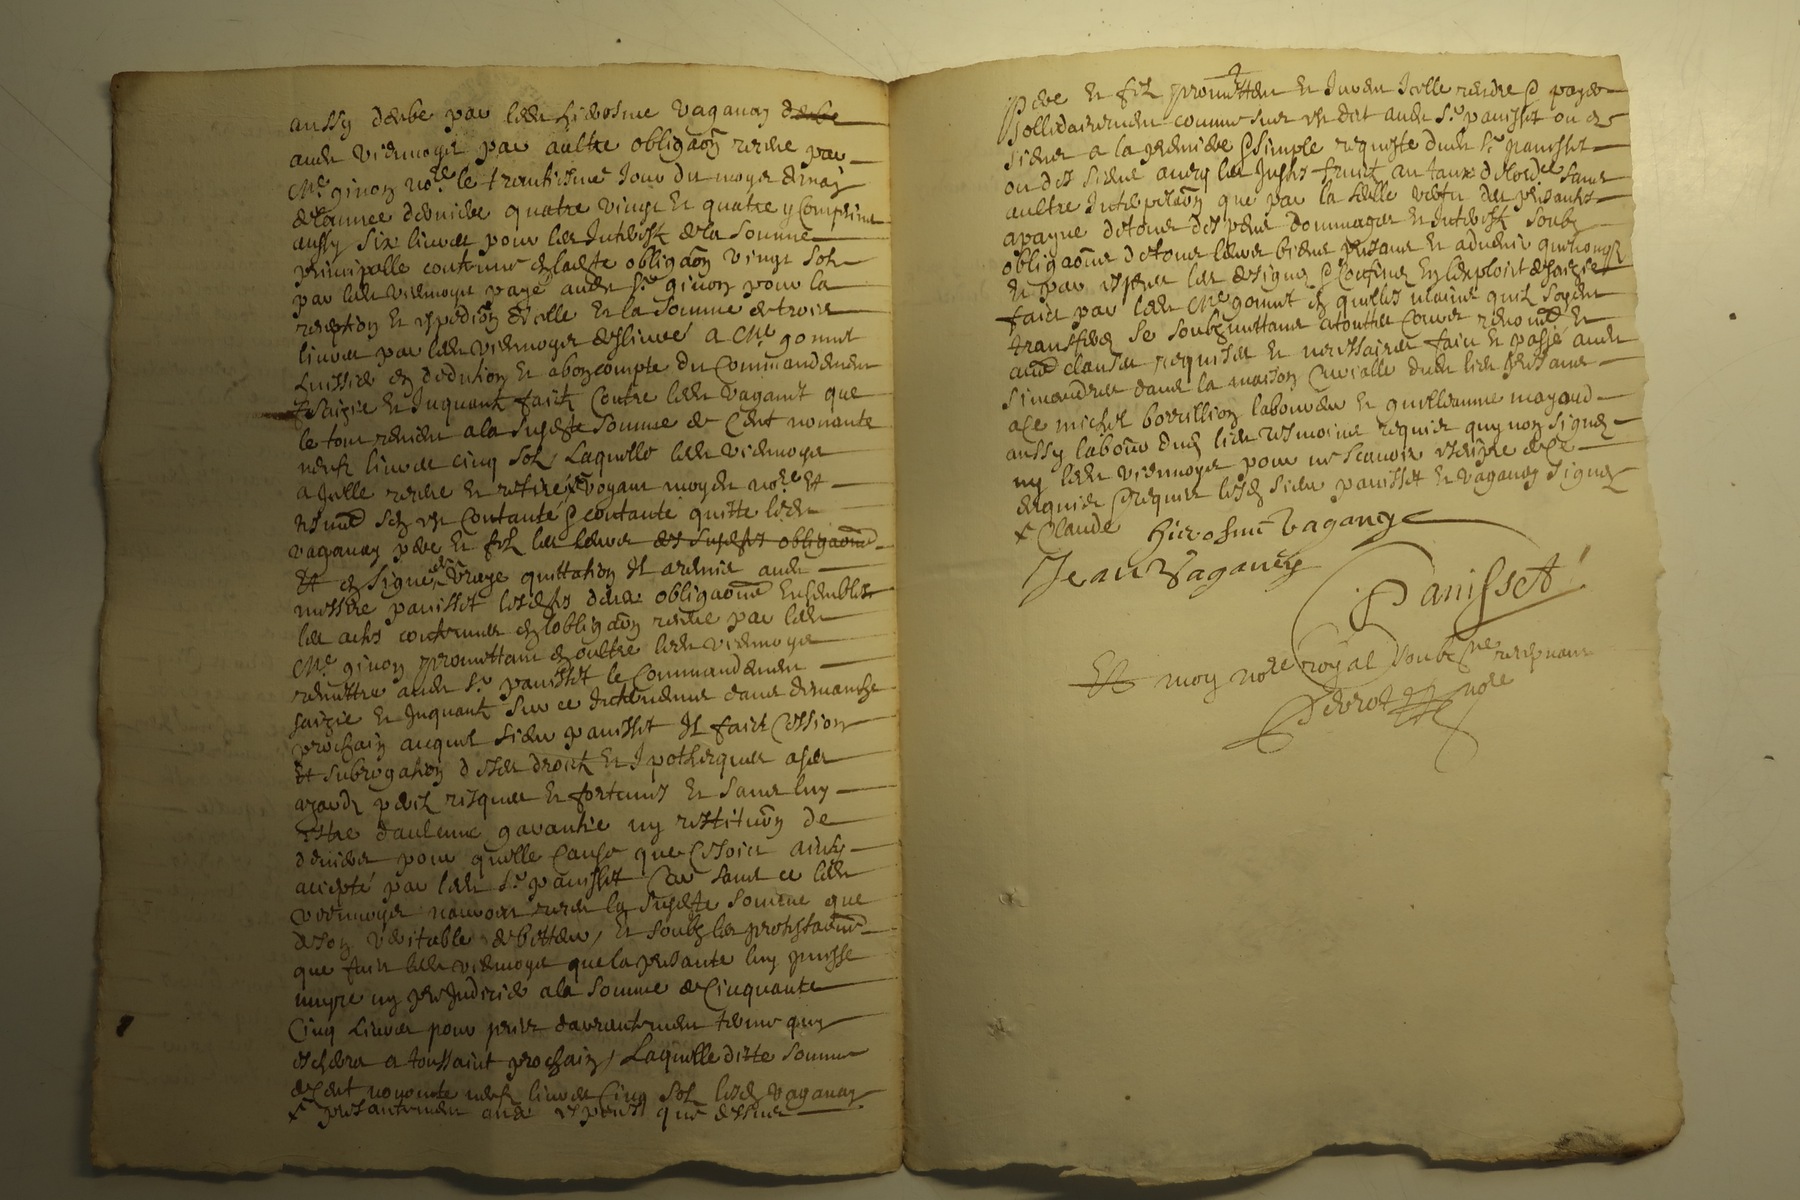 aussy deube par ledt hierosme vaganay deube
audt viermoyer par aultre obligaōn receüe par
Me ginon nore le trantiesme Jour du moyes de may
de lannee derniere quatre vingt et quatre y Comprins
aussy six livres pour les Interestz de la somme
principalle contenue en ladte obligaōn vingt solz
par ledt viermoyer payé audt sr ginon pour la
reception et expediōn dicelle et la somme de trois
livres par ledt viermoyer deslivré a Me gonnet
huissier en dedution et a bon compte du Commandement
saizie et Inquantz faictz Contre ledt vaganet que
le tout revient a la susdte somme de Cent nonante
neufz livres cinq solz Laquelle ledt viermoyer
a Juelle receue et retiree voyant moydt nore et
tesmt sen est Contanté et contanté quitte lesdt
vaganay pere et filz les leurs des susdtes obligaōns
Et en signe vraye quittation Il a remis audt
messire panisset lesdtes deux obligaōns Ensemble
les actes contenues en lobligaōn receue par ledt
Me ginon promettant en oultre ledt viermoyer
remettre audt sr panisset le Commandement
saizie et Inquantz sur ce Intervenus dans dimanche
prochain auquel sieur panisset Il faict Cession
et subrogation desdes droictz et Ipotheques a ses
azardz perilz risques et fortunes et sans luy
estre daulcune garantie ny restituōn de
deniers pour quelle Cause que Cesoict ainsy
accepté par ledt sr panisset Car sans ce ledt
viermoyer nauroit receu la susdte somme que
de son veritable debitteur, et soubz les protestaōns
que faict ledt viermoyer que la presante luy puisse
nuyre ny prejudicier a la somme de Cinquante
Cinq Livres pour prix darrantement terme quy
escherra a toussaint prochain, Laquelle ditte somme
de Cent nonante neufz livres Cinq solz lesdt vaganay
x presantement aux especes que dessus
Pere et filz promettent et Jurent Icelle rendre et payer
sollidairement comme sus est dit audt sr panisset ou es
siens a la premiere et simple requeste dudt sr panisset
ou des siens avecq les Justes fruictz au taux de lordce sans
aultre Interpelaōn que par la seulle vertu des presantes
a payne de tous despens dommages et Interestz soubz
obligaōns de tous leurs biens presans et advenir quelconqz
et par expres les designes et Confines En lexploict de saizie
faict par ledt Me gonnet en quelles mains quilz soyent
transferes se soubzmettans a touttes Cours renonct et
auec clauses requises et necessaires faict et passé audt
simandres dans la maison Curialle dudt lieu presans
a Ce michel borrillion laboureur et guilleaume mayoud
aussy labour dudt lieu tesmoins requis quy non signes
ny ledt viermoyer pour ne scavoir escripre de Ce
enquis et requis lesdt sieur panisset et vaganay signes
x Claude
hierosme vaganay
Jean Vaganey
Panisset
Et moy nore royal soubzné recepvant
Perrot nore